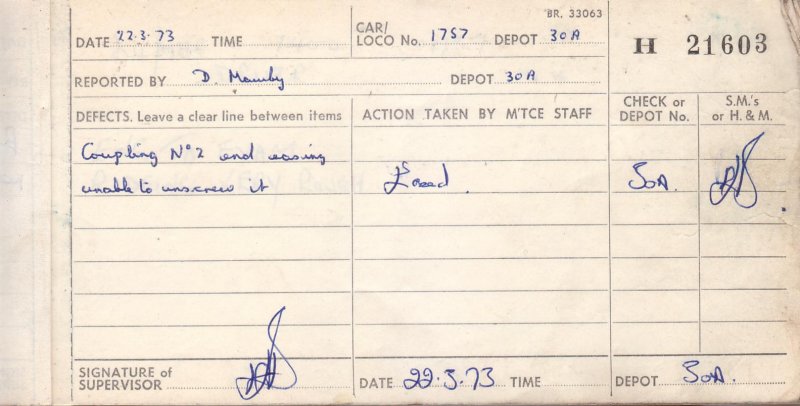 BR. 33063
DATE 22.3.73 TIME CAR/ LOCO No. 1757 DEPOT 30A
H 21603
REPORTED BY D. DEPOT 30A
DEFECTS. Leave a clear line between items
ACTION TAKEN BY M'TCE STAFF
CHECK or DEPOT No.
S.M.'s or H. & M.
Coupling Nº 2 end
unable to unscrew it
30A.
SIGNATURE of SUPERVISOR
DATE 22.3.73 TIME
DEPOT 30A.